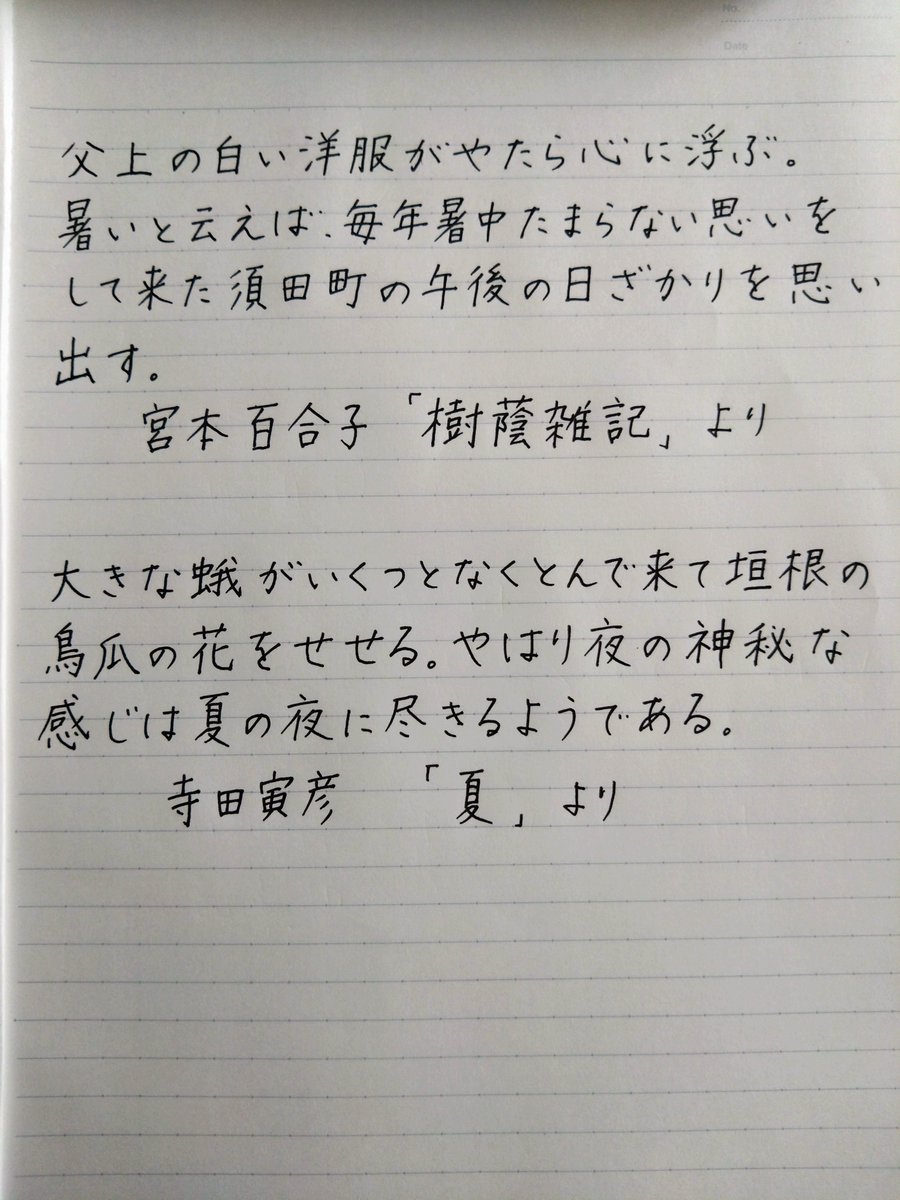 No.
Date
父上の白い洋服がやたら心に浮ぶ。
暑いと云えば、毎年暑中たまらない思いを
して来た須田町の午後の日ざかりを思い
出す。
宮本百合子「樹蔭雑記」より
大きな蛾がいくつとなくとんで来て垣根の
烏瓜の花をせせる。やはり夜の神秘な
感じは夏の夜に尽きるようである。
寺田寅彦 「夏」より